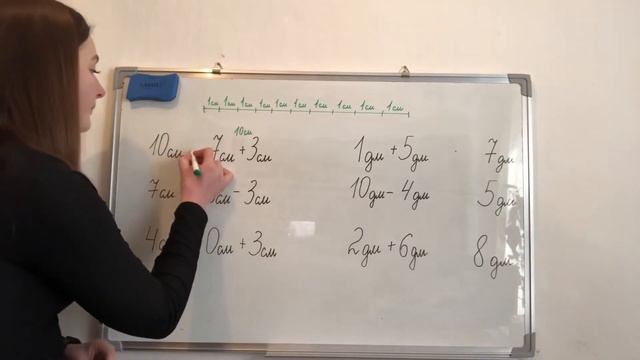 1см 1см 1см 1см 1см 1см 1см 1см 1см 1см
10см
10см 7см + 3см 1дм + 5дм 7дм
7см см - 3см 10дм - 4дм 5дм
4 0см + 3см 2дм + 6дм 8дм